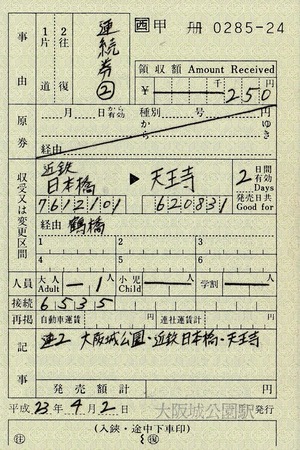 西 甲 冊 0285-24
事由
1片道
2往復
連続券②
領収額 Amount Received
千 円
¥ 250
原券
月 日から有効 種別 号 円
から ゆき
経由
収受又は変更区間
近鉄日本橋 ▶ 天王寺
7612101 620831
2日間有効 Days
発売日共 Good for
経由 鶴橋
1 2 3
4 5 6
人員 大人 Adult 1 小児 Child 学割
接続 6535
再掲 自動車運賃 円 連社運賃計 円
記事
連2 大阪城公園・近鉄日本橋・天王寺
発売額計 円
平成 23年 4月 2日 大阪城公園駅 発行
(入鋏・途中下車印)
注 復